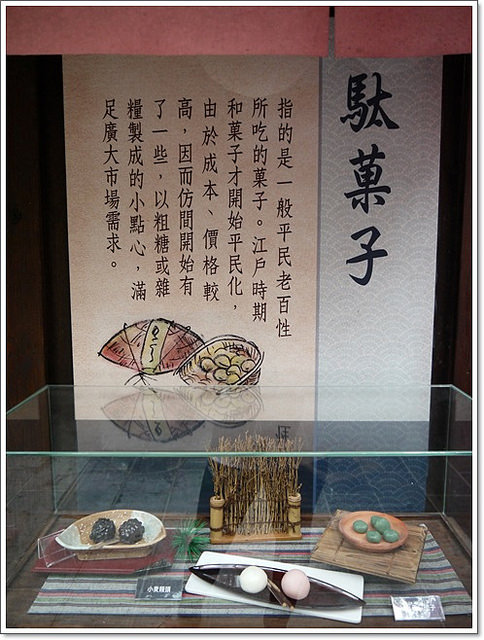 駄菓子
指的是一般平民老百性
所吃的菓子。江戶時期
和菓子才開始平民化，
由於成本、價格較
高，因而仿間開始有
了一些，以粗糖或雜
糧製成的小點心，滿
足廣大市場需求。
小麥饅頭